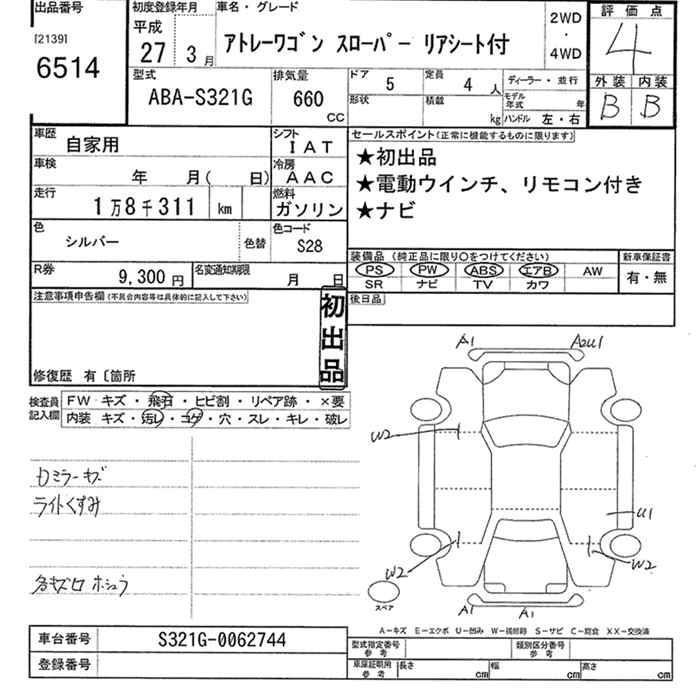 出品番号
[2139]
6514
初度登録年月
平成
27 3月
車名・グレード
アトレーワゴン スローパー リアシート付
2WD
・
4WD
評価点
4
外装 内装
B B
型式
ABA-S321G
排気量
660
CC
ドア 5
定員 4 人
ディーラー・並行
形状
積載 kg
モデル年式 年
ハンドル 左・右
車歴 自家用
シフト IAT
車検 年 月( 日)
冷房 AAC
走行 1万8千311 km
燃料 ガソリン
色 シルバー 色替
色コード S28
R券 9,300円
名変通知期限 月 日
セールスポイント(正常に機能するものに限ります)
★初出品
★電動ウインチ、リモコン付き
★ナビ
装備品 (純正品に限り○をつけてください)
PS PW ABS エアB AW
SR ナビ TV カワ
新車保証書
有・無
後日品
注意事項申告欄(不具合内容等は具体的に記入して下さい)
初出品
修復歴 有〔箇所
検査員記入欄
FW キズ・飛石・ヒビ割・リペア跡・×要
内装 キズ・汚し・コゲ・穴・スレ・キレ・破レ
カミラーキズ
ライトくすみ
各キズロ ホシュウ
A1 A2U1
W2
U1
W2 W2
スペア
A1 A1
A−キズ E−エクボ U−凹み W−補修跡 S−サビ C−腐食 XX−交換済
車台番号 S321G-0062744
登録番号
型式指定番号参考
類別区分番号参考
車庫証明用参考 長さ cm 幅 cm 高さ cm